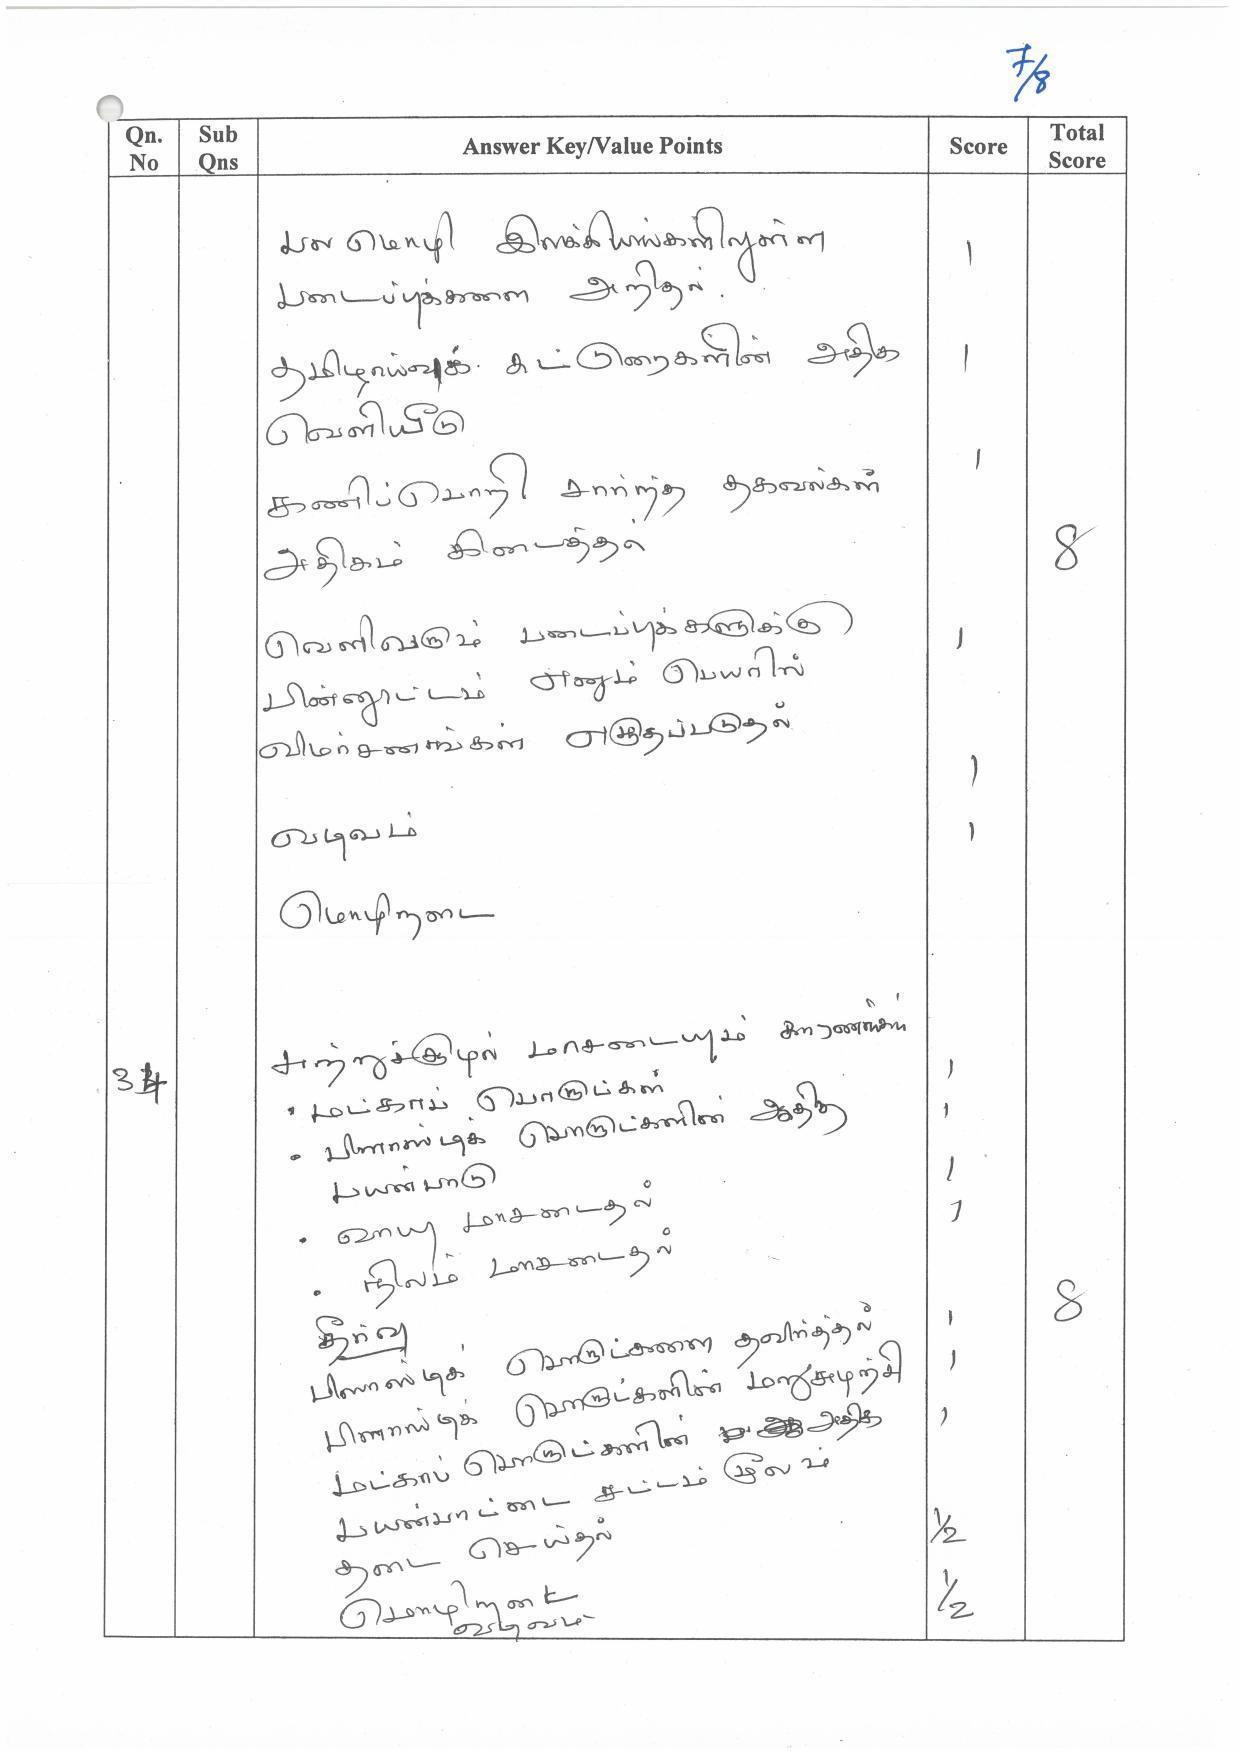 7/8
Qn. No Sub Qns Answer Key/Value Points Score Total Score
பல மொழி இலக்கியங்களிலுள்ள 1
படைப்புக்களை அறிதல்.
தமிழாய்வுக் கட்டுரைகளின் அதிக 1
வெளியீடு
கணிப்பொறி சார்ந்த தகவல்கள் 1
அதிகம் கிடைத்தல் 8
வெளிவரும் படைப்புக்களுக்கு 1
பின்னூட்டம் எனும் பெயரில்
விமர்சனங்கள் எழுதப்படுதல்
1
வடிவம் 1
மொழிநடை
34 சுற்றுச்சூழல் மாசடையும் காரணங்கள்
• மட்காப் பொருட்கள் 1
• பிளாஸ்டிக் பொருட்களின் அதிக 1
பயன்பாடு 1
• வாயு மாசடைதல் 1
• நிலம் மாசடைதல்
தீர்வு 8
பிளாஸ்டிக் பொருட்களை தவிர்த்தல் 1
பிளாஸ்டிக் பொருட்களின் மறுசுழற்சி 1
மட்காப் பொருட்களின் அதிக 1
பயன்பாட்டை சட்டம் மூலம்
தடை செய்தல் 1/2
மொழிநடை 1/2
வடிவம்